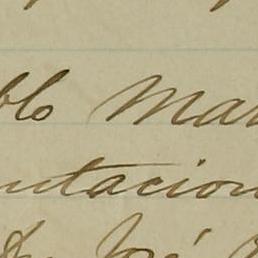 blo Mar
utacion
Dn José